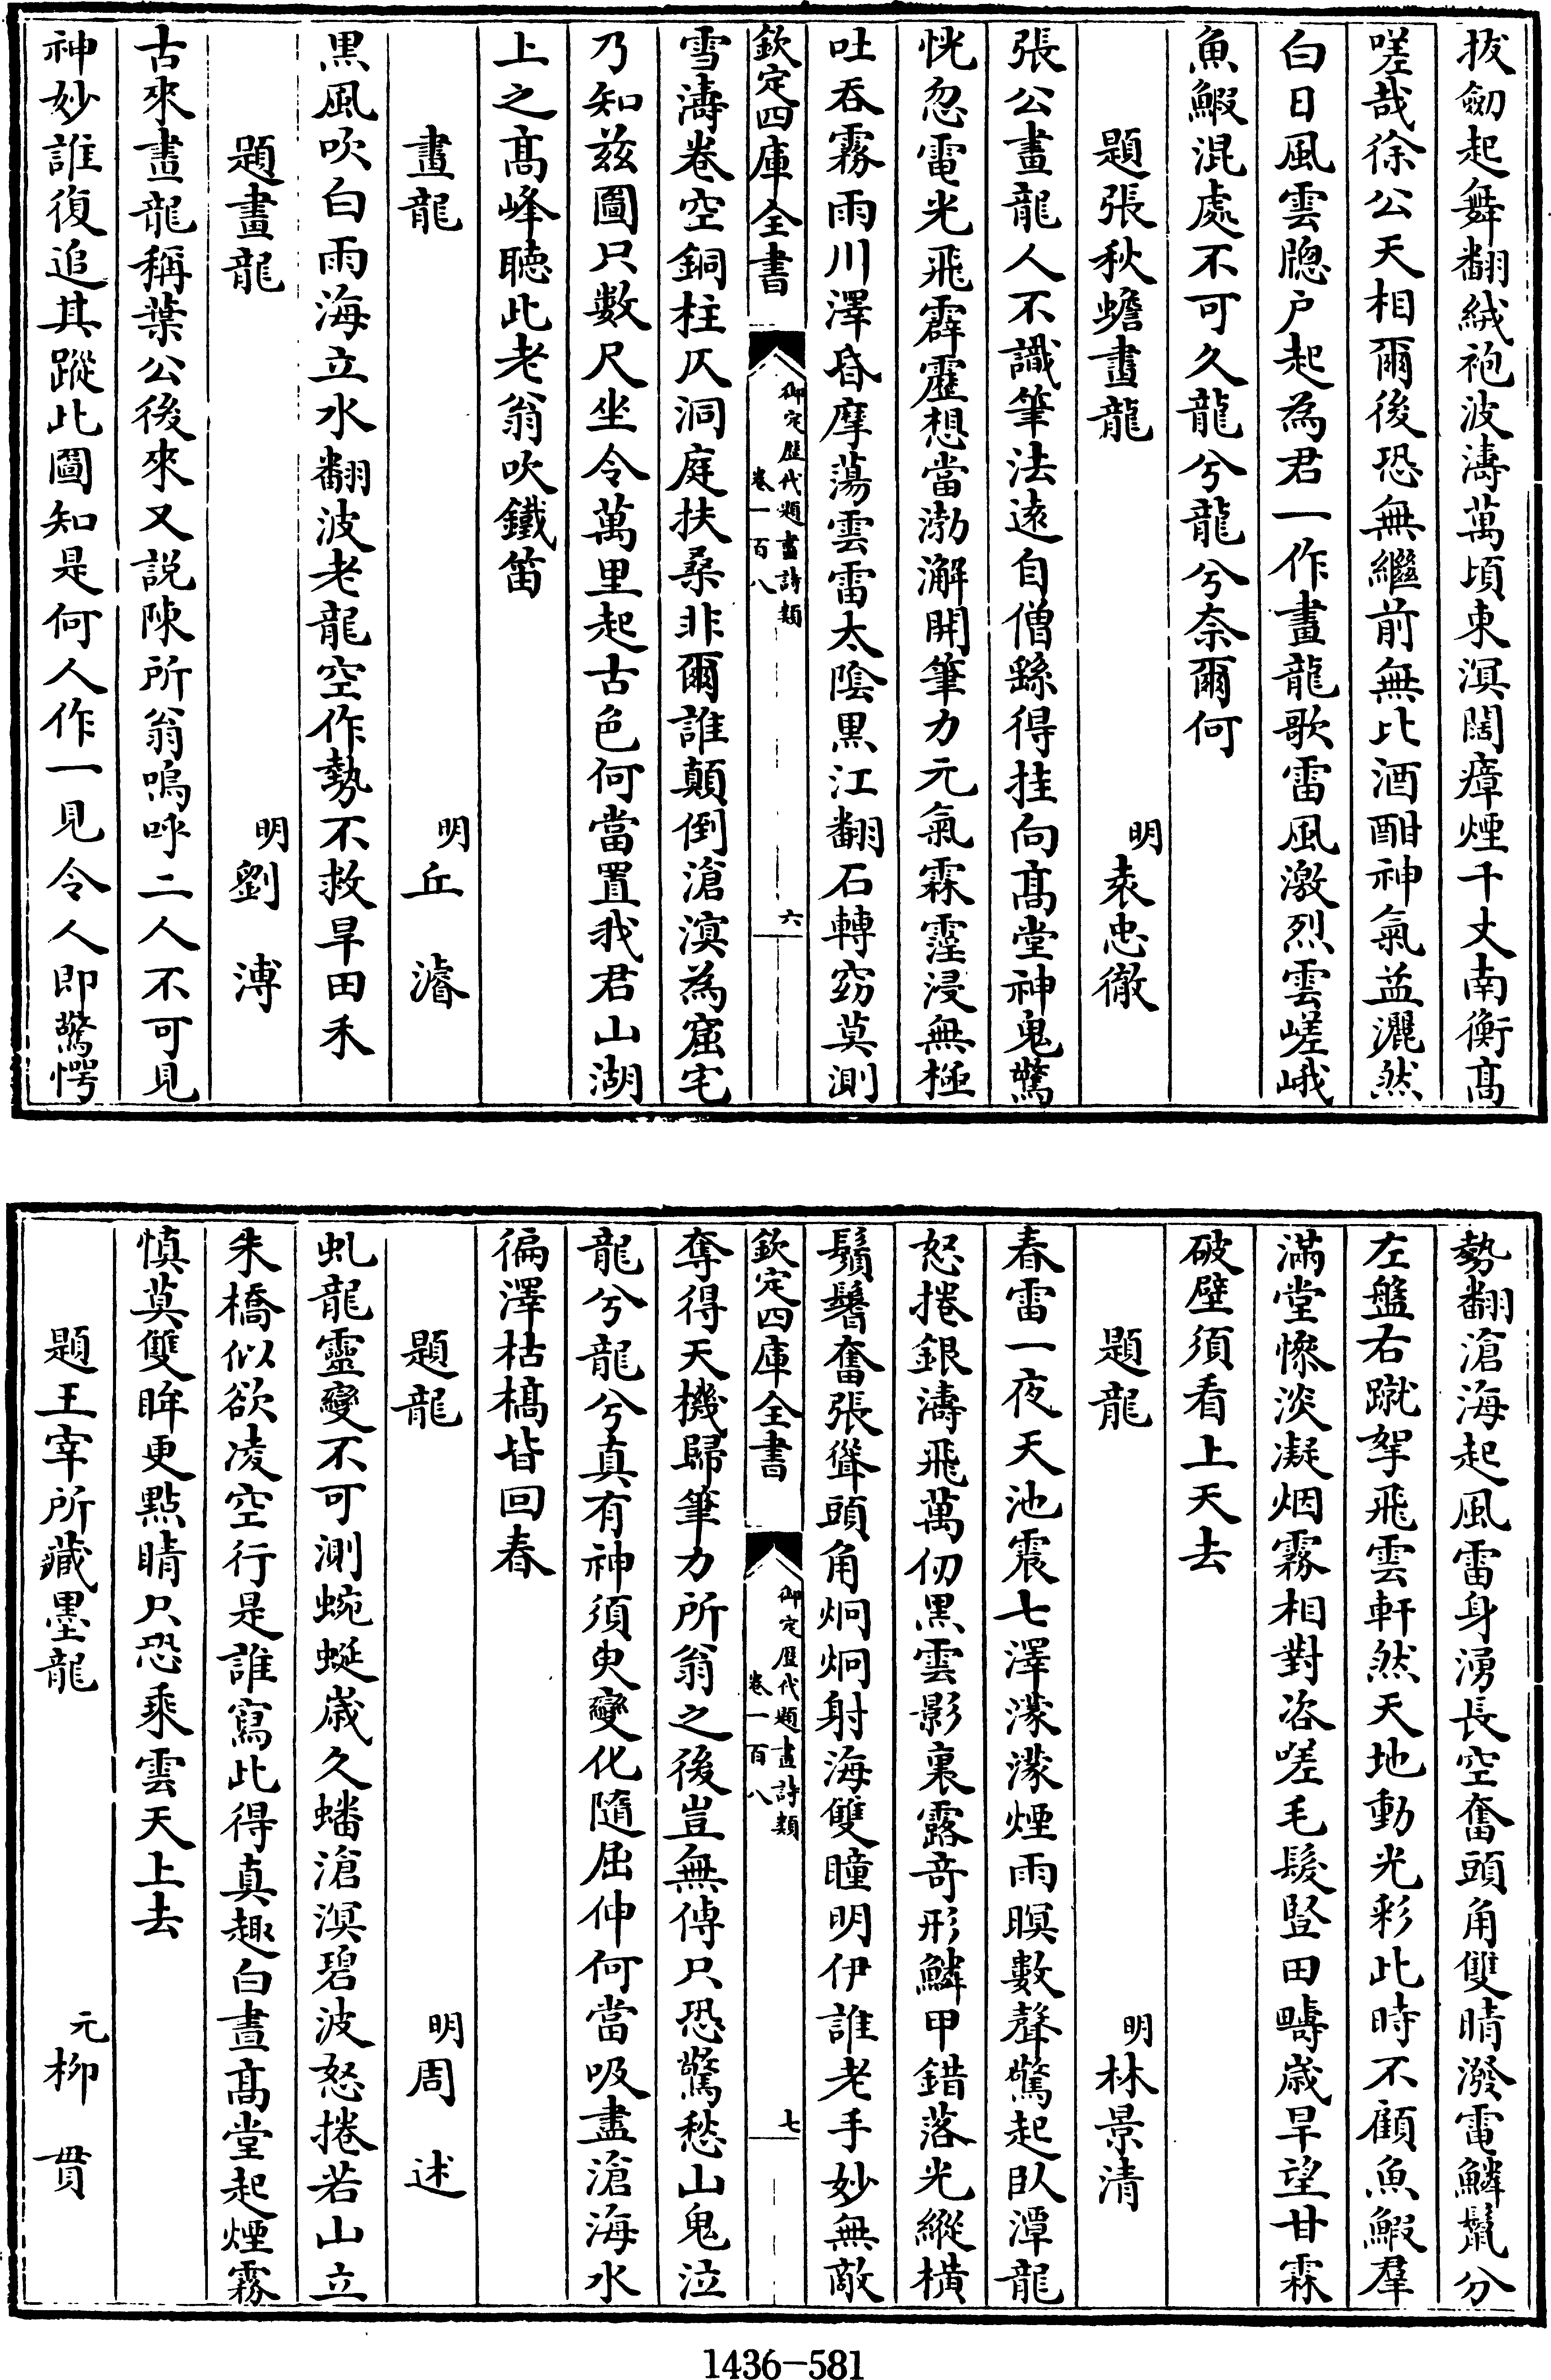 拔劒起舞翻絨袍波濤萬頃東溟闊瘴煙千丈南衡髙
嗟哉徐公天相爾後恐無繼前無比酒酣神氣益灑然
白日風雲牕户起為君一作畫龍歌雷風激烈雲嵯峨
魚鰕混處不可久龍兮龍兮奈爾何
題張秋蟾畫龍 明袁忠徹
張公畫龍人不識筆法逺自僧繇得挂向髙堂神鬼驚
恍忽電光飛霹靂想當渤澥開筆力元氣霖霪浸無極
吐吞霧雨川澤昏摩蕩雲雷太隂黒江翻石轉窈莫測
欽定四庫全書 御定歴代題畫詩類 卷一百八 六
雪濤卷空銅柱仄洞庭扶桑非爾誰顛倒滄溟為窟宅
乃知兹圖只數尺坐令萬里起古色何當置我君山湖
上之髙峰聽此老翁吹鐵笛
畫龍 明丘濬
黒風吹白雨海立水翻波老龍空作勢不救旱田禾
題畫龍 明劉溥
古來畫龍稱葉公後來又説陳所翁嗚呼二人不可見
神妙誰復追其蹤此圖知是何人作一見令人即驚愕
勢翻滄海起風雷身湧長空奮頭角雙睛潑電鱗鬛分
左盤右蹴拏飛雲軒然天地動光彩此時不顧魚鰕羣
滿堂慘淡凝烟霧相對咨嗟毛髮豎田疇歲旱望甘霖
破壁須看上天去
題龍 明林景清
春雷一夜天池震七澤濛濛煙雨暝數聲驚起臥潭龍
怒捲銀濤飛萬仞黒雲影裏露竒形鱗甲錯落光縱横
鬚髯奮張聳頭角炯炯射海雙瞳明伊誰老手妙無敵
欽定四庫全書 御定歴代題畫詩類 卷一百八 七
奪得天機歸筆力所翁之後豈無傳只恐驚愁山鬼泣
龍兮龍兮真有神須臾變化隨屈伸何當吸盡滄海水
徧澤枯槁皆回春
題龍 明周述
虬龍靈變不可測蜿蜒歳久蟠滄溟碧波怒捲若山立
朱橋似欲凌空行是誰寫此得真趣白晝髙堂起煙霧
慎莫雙眸更點睛只恐乘雲天上去
題王宰所藏墨龍 元柳貫
1436-581